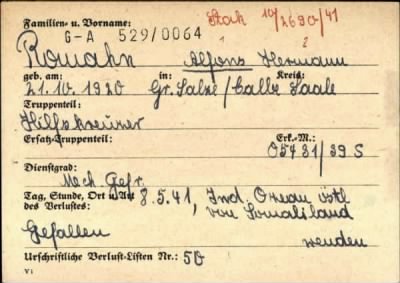 Familien- u. Vorname: Stak 10/2690/41
G-A 529/0064
Romahn Alfons Hermann
geb. am: in: Kreis:
21.10.1920 Gr. Salze/Calbe Saale
Truppenteil:
Hilfskreuzer
Ersatz-Truppenteil: Erk.-M.:
O5431/39 S
Dienstgrad:
Mech. Gefr.
Tag, Stunde, Ort u. Art des Verlustes: 8.5.41, Ind. Ozean östl
von Somaliland
Gefallen
Urschriftliche Verlust-Listen Nr.: 50
VI